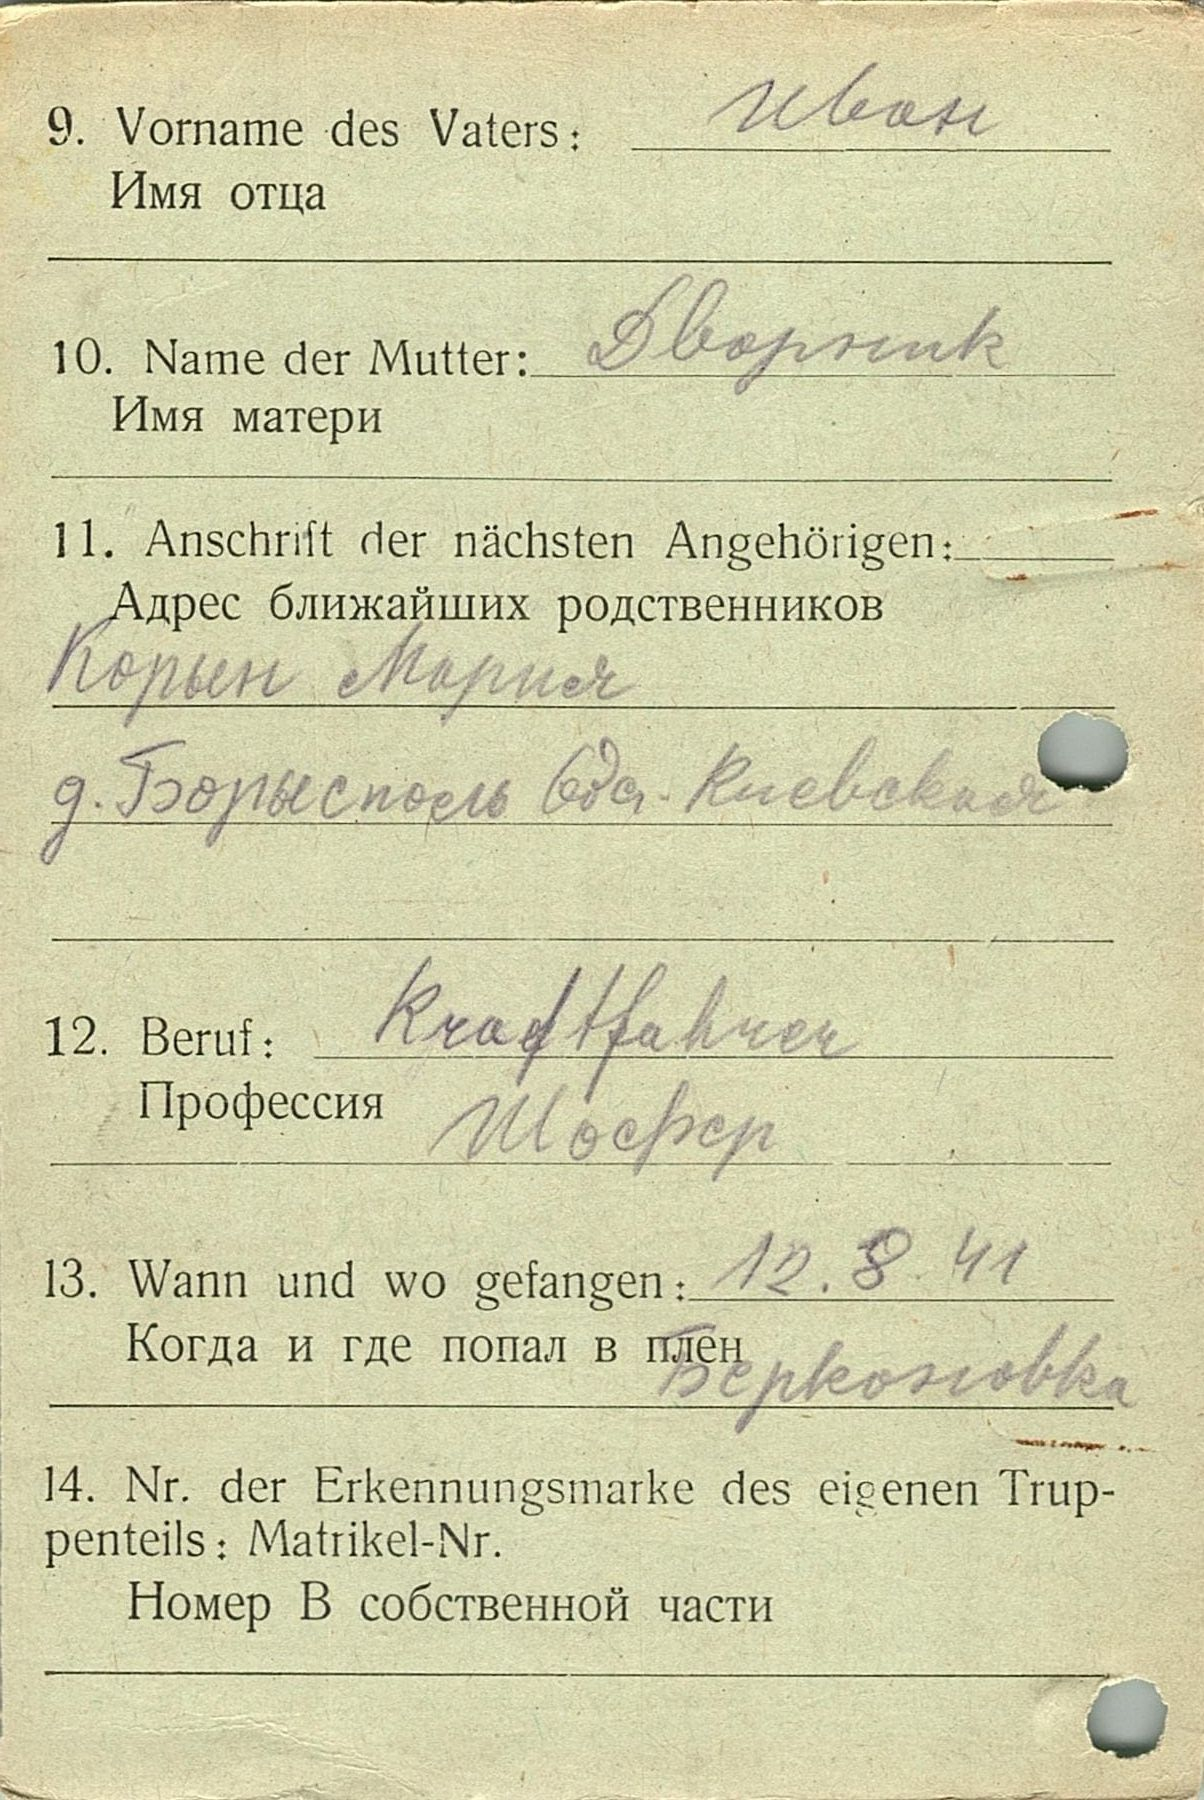 9. Vorname des Vaters: Иван
Имя отца
10. Name der Mutter: Дворник
Имя матери
11. Anschrift der nächsten Angehörigen:
Адрес ближайших родственников
Корын Мария
д. Борысполь Обл. Киевская
12. Beruf: Kraftfahrer
Профессия Шофер
13. Wann und wo gefangen: 12. 8. 41
Когда и где попал в плен
Берконовка
14. Nr. der Erkennungsmarke des eigenen Trup-
penteils: Matrikel-Nr.
Номер В собственной части